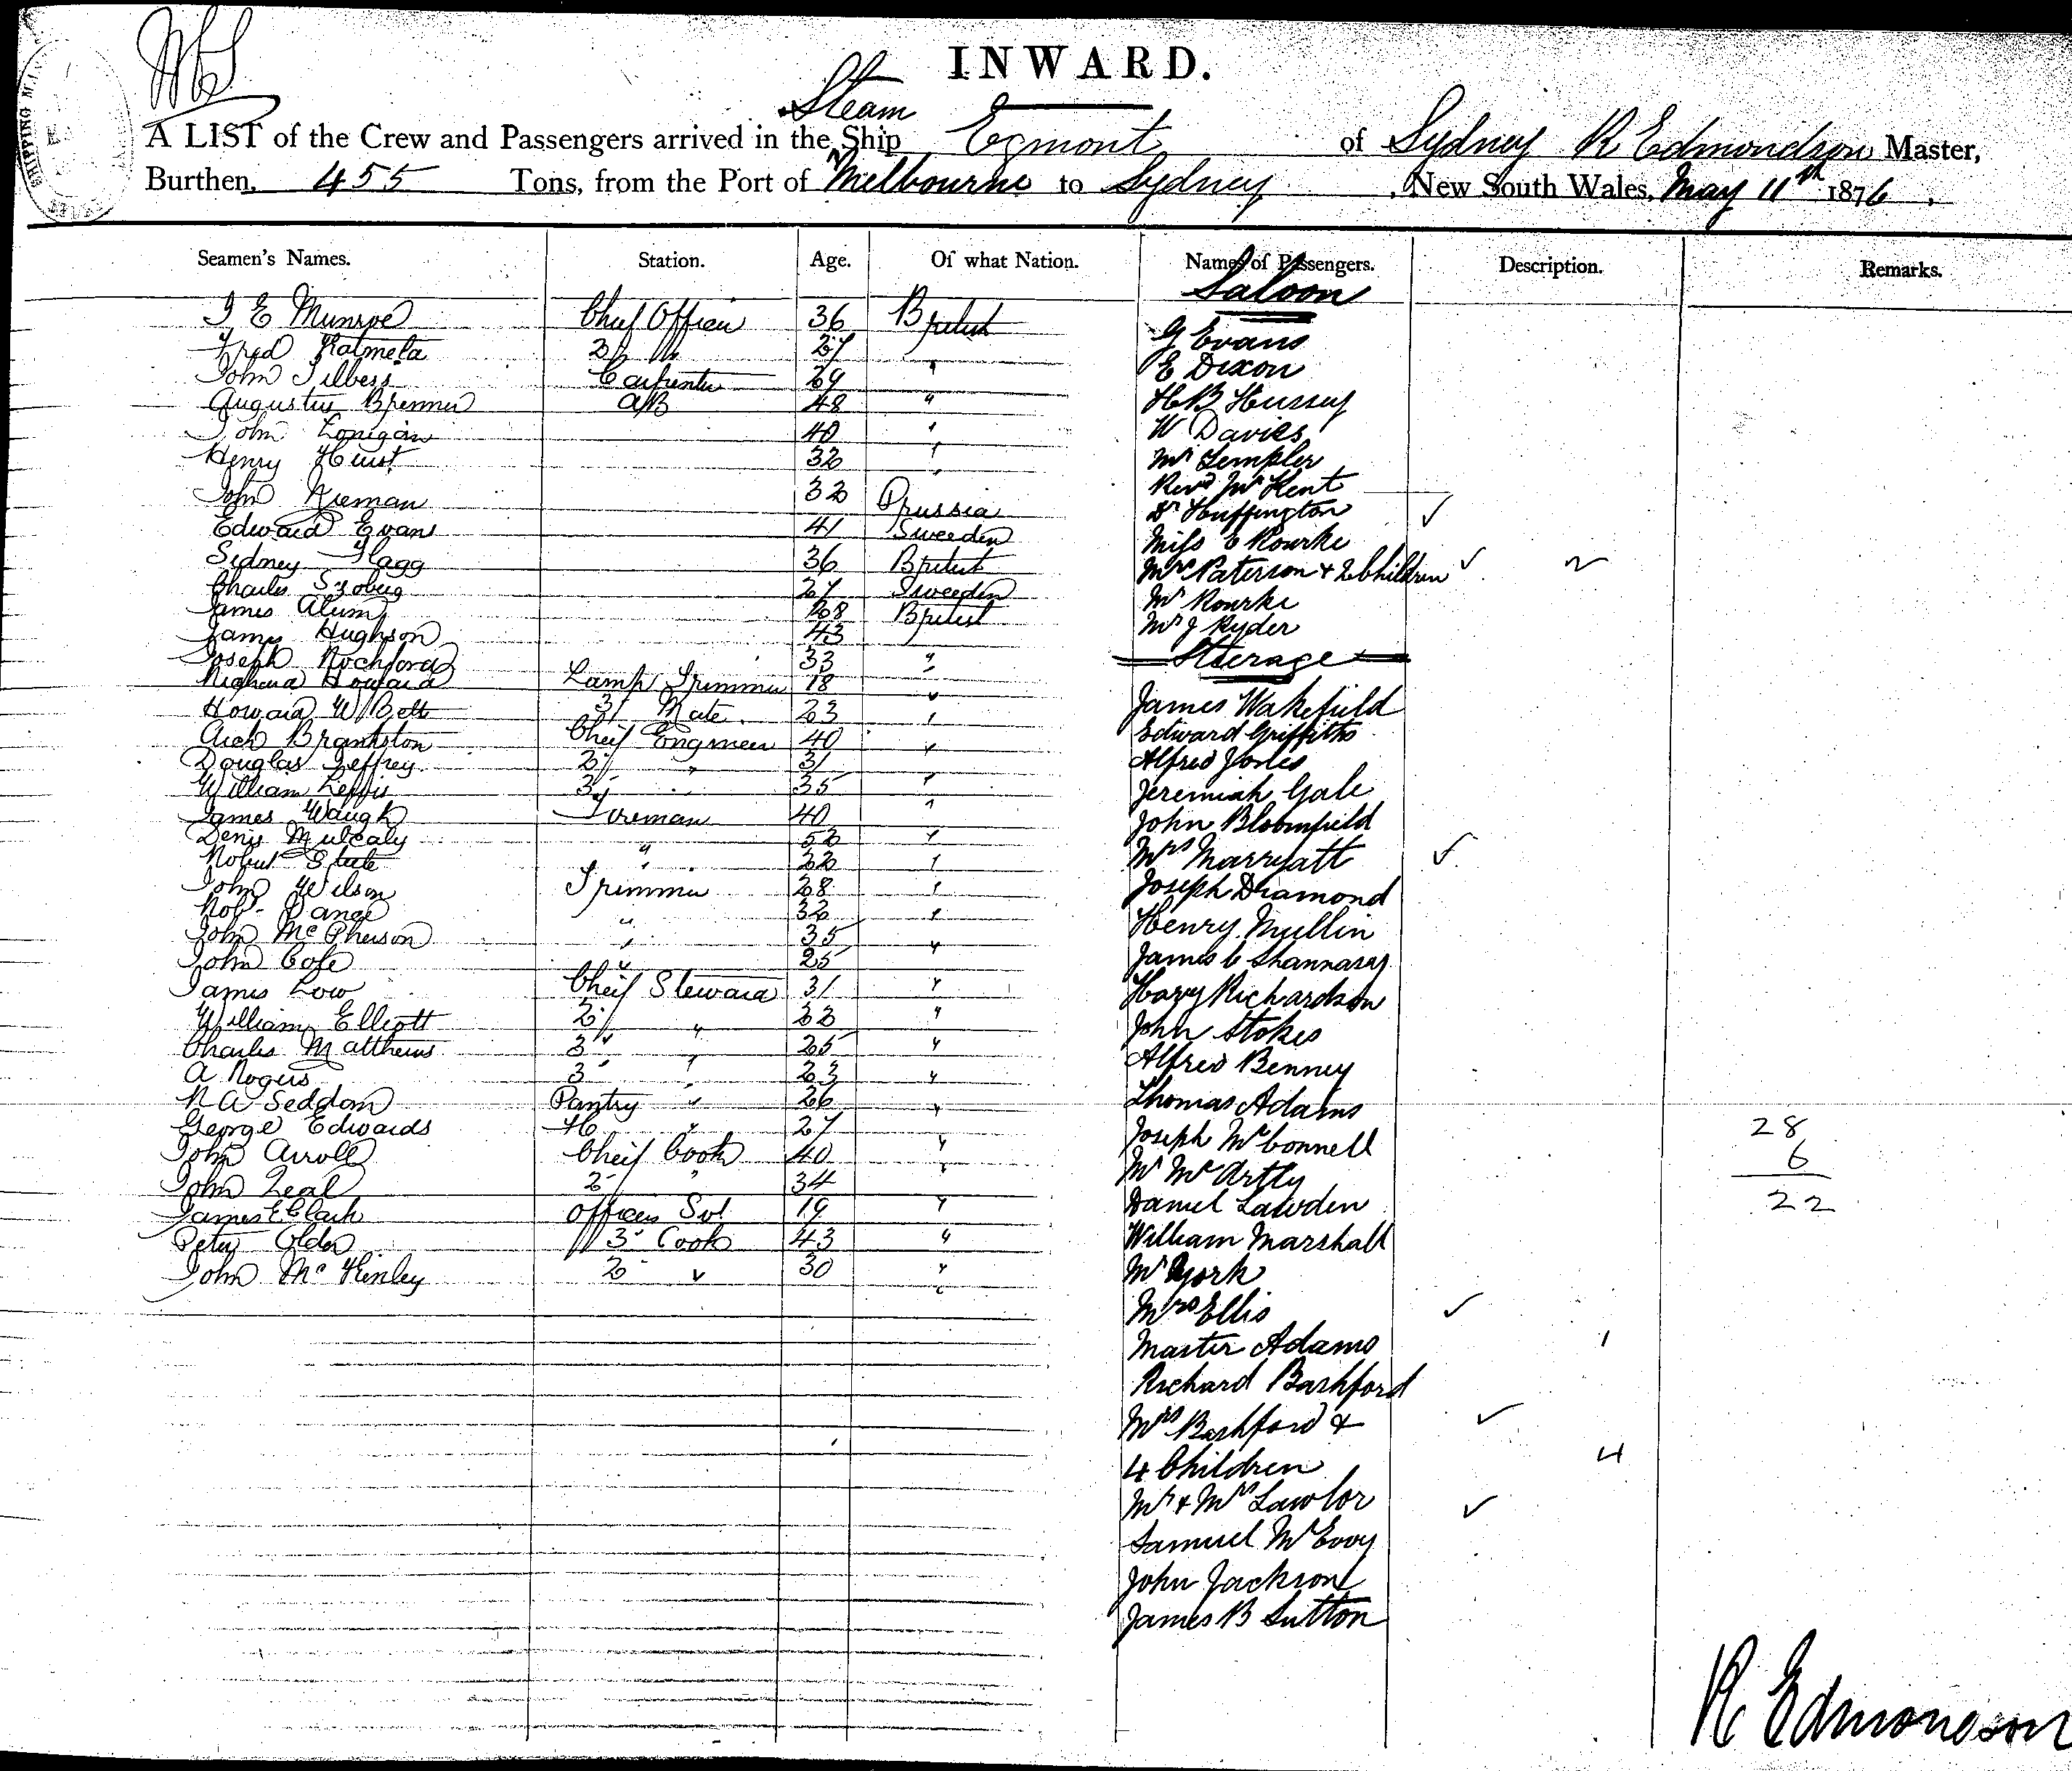 INWARD.
Steam
A LIST of the Crew and Passengers arrived in the Ship Egmont of Sydney R Edmondson Master,
Burthen, 455 Tons, from the Port of Melbourne to Sydney, New South Wales, May 11th 1876.
Seamen's Names. Station. Age. Of what Nation. Names of Passengers. Description. Remarks.
Saloon
I E Munroe Cheif Officer 36 British
Fred 27 "
John Carpenter 29 "
Augustus Brenner A/B 48 "
John Lonigan 40 "
Henry Hurst 32 "
John Nieman 32 Prussia
Edward Evans 41 Sweeden
Sidney Flagg 36 British
Charles 27 Sweeden
James Alum 28 British
James Hughson 43
Joseph Rochford 33 "
Richard Howard Lamp Trimmer 18 "
Howard W Bett 3 Mate 23 "
Arch Brankston Cheif Engineer 40 "
Douglas Jeffrey 2 " 31
William 3 " 35 "
James Waugh Foreman 40 "
Denis Mulcaly " 52 "
Robert State " 22 "
John Wilson Trimmer 28 "
Robt Dange " 32 "
John McPherson " 35 "
John Cose " 25
James Low Cheif Steward 31 "
William Elliott 2 " 22 "
Charles Matthews 3 " 25 "
A Rogers 3 " 23 "
R A Seddon Pantry " 26 "
George Edwards " 27
John Arroll Cheif Cook 40 "
John Leal 2 " 34 "
James E Clark Officers Svt 19 "
Peter Older 3 Cook 43 "
John McKinley 2 " 30 "
G Evans
E Dixon
H B Hussey
W Davies
Mr Templer
Revd Mr Kent
Dr Huffington ✓
Miss O Rourke
Mrs Paterson + 2 Children ✓ 2
Mr Rourke
Mr J Ryder
Steerage
James Wakefield
Edward Griffiths
Alfred Jones
Jeremiah Gale
John Bloomfield
Mrs Marryatt ✓
Joseph Diamond
Henry Mullin
James C Shannasy
Harry Richardson
John Stokes
Alfred Benney
Thomas Adams
Joseph McConnell
Mr McArtly
Daniel Lawden
William Marshall
Mr York
Mrs Ellis ✓
Master Adams 1
Richard Bashford
Mrs Bashford & ✓
4 Children 4
Mr + Mrs Lawlor ✓
Samuel McEvoy
John Jackson
James B Sutton
28
6
22
R Edmondson